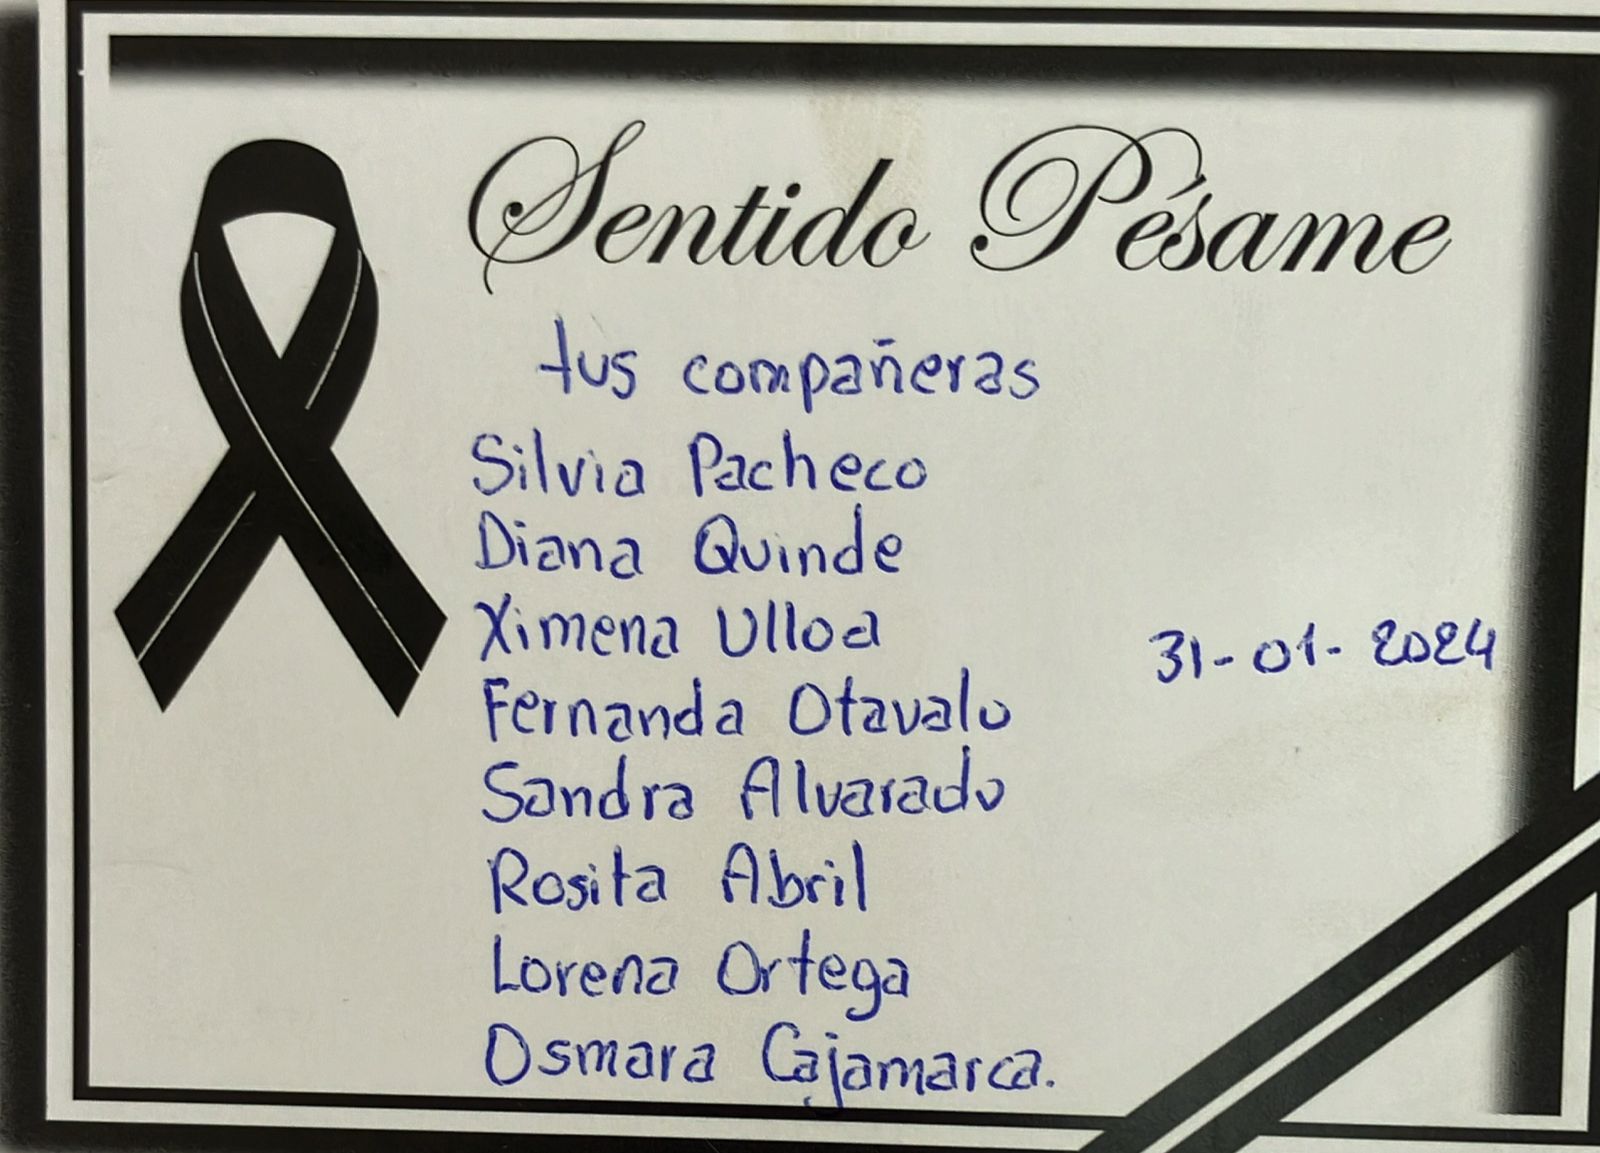 Sentido Pésame
tus compañeras
Silvia Pacheco
Diana Quinde
Ximena Ulloa
31-01-2024
Fernanda Otavalo
Sandra Alvarado
Rosita Abril
Lorena Ortega
Osmara Cajamarca.